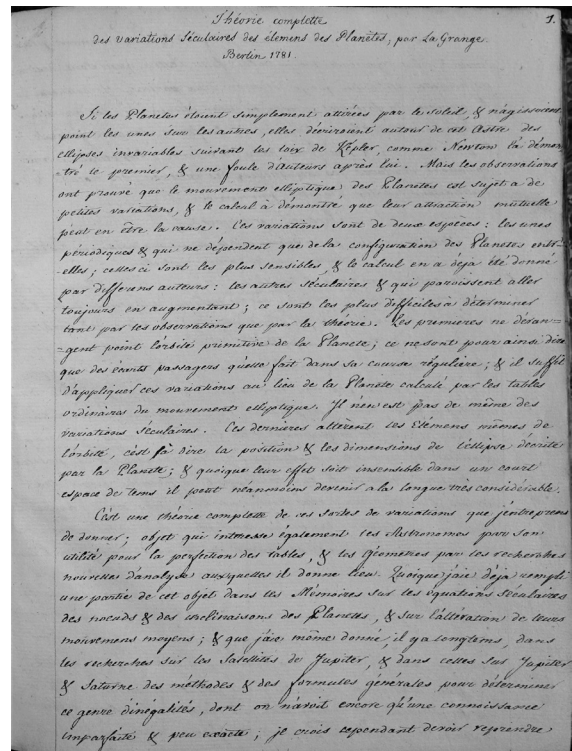 Théorie complette
1.
des variations séculaires des élémens des Planètes; par La Grange.
Berlin 1781.
Si les Planetes étoient simplement attirées par le soleil, & n'agissoient
point les unes sur les autres, elles décriroient autour de cet Astre des
ellipses invariables suivant les loix de Képler, comme Newton l'a démon
tré le premier, & une foule d'auteurs après lui. Mais les observations
ont prouvé que le mouvement elliptique des Planetes est sujet a de
petites variations, & le calcul à démontré que leur attraction mutuelle
peut en être la cause. Ces variations sont de deux espèces: les unes
périodiques & qui ne dépendent que de la configuration des Planetes entr-
-elles; celles ci sont les plus sensibles, & le calcul en a déja été donné
par differens auteurs: les autres séculaires & qui paroissent aller
toujours en augmentant; ce sont les plus difficiles à déterminer
tant par les observations que par la théorie. Les premieres ne déran-
=gent point l'orbite primitive de la Planete; ce ne sont pour ainsi dire
que des écarts passagers qu'elle fait dans sa course régulière; & il suffit
d'appliquer ces variations au lieu de la Planete calculé par les tables
ordinaires du mouvement elliptique. Il n'en est pas de même des
variations séculaires. Ces dernieres altèrent les Elémens mêmes de
l'orbite, c'est à dire la position & les dimensions de l'ellipse décrite
par la Planete; & quoique leur effet soit insensible dans un court
espace de tems il peut néanmoins devenir a la longue très considérable.
C'est une théorie complette de ces sortes de variations que j'entreprens
de donner; objet qui intéresse également les Astronomes par son
utilité pour la perfection des tables, & les Géometres par les recherches
nouvelles d'analyse auxquelles il donne lieu. Quoique j'aie déja rempli
une partie de cet objet dans les Mémoires sur les équations séculaires
des nœuds & des inclinaisons des Planetes, & sur l'altération de leurs
mouvemens moyens; & que j'aie même donné, il y a longtems, dans
les recherches sur les Satellites de Jupiter, & dans celles sur Jupiter
& Saturne des méthodes & des formules générales pour déterminer
ce genre d'inégalités, dont on n'avoit encore qu'une connoissance
imparfaite & peu exacte; je crois cependant devoir reprendre